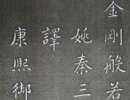 金剛般若
姚秦三
譯
康熙御